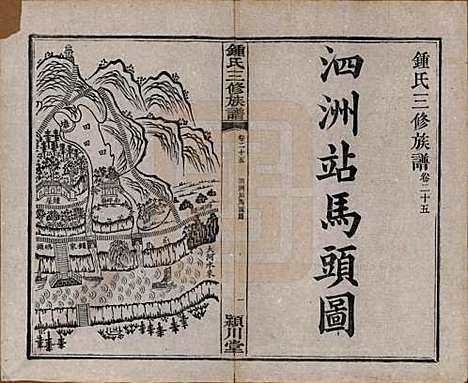 鍾氏三修族譜 卷二十五
泗洲站馬頭圖
鍾氏三修族譜
卷二十五 泗洲站馬頭圖
一
潁川堂
田
田
田
大河水來